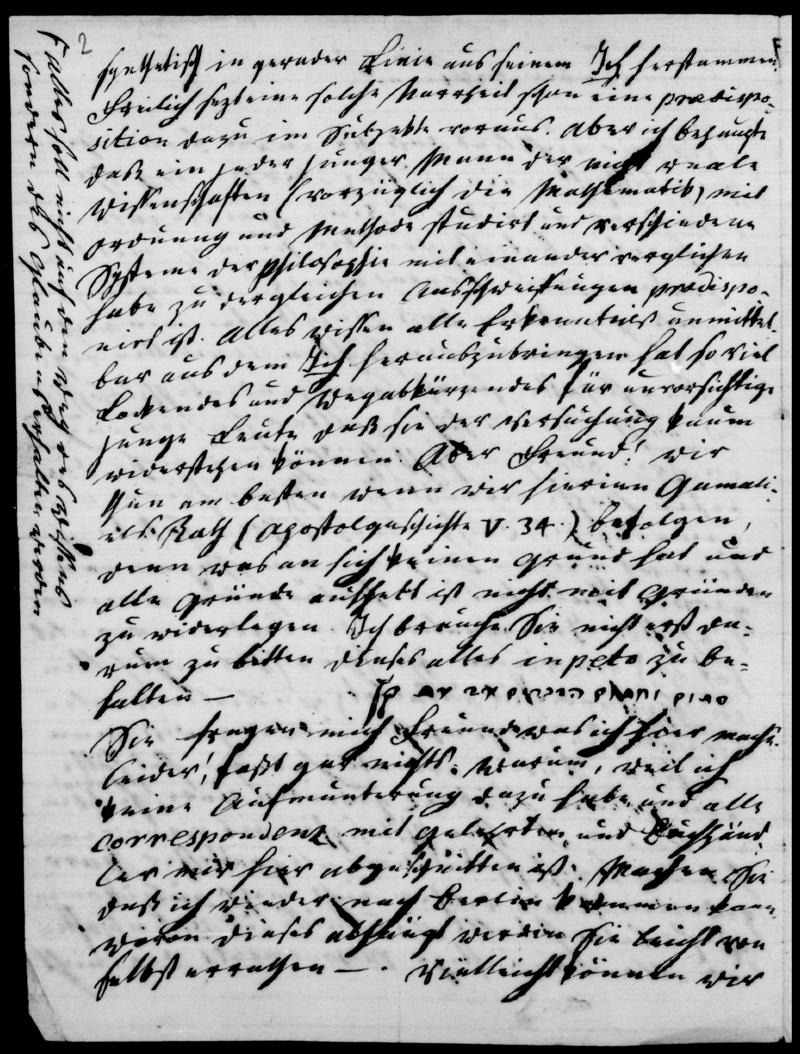 2
synthetisch in gerader Linie aus seinem Ich herstammen.
Freilich sezt eine solche Narrheit schon eine praedispo-
sition dazu im Subjekte voraus. Aber ich behaupte
daß ein jeder junger Mann der nicht reale
Wissenschaften (vorzüglich die Mathematik) mit
Ordnung und Methode studirt und verschiedene
Systeme der Philosophie mit einander verglichen
habe zu dergleichen Ausschweifungen praedispo-
nirt ist. Alles Wissen alle Erkenntniß unmittel-
bar aus dem Ich herauszubringen hat so viel
Lockendes und Wegabkürzendes für unvorsichtige
junge Leute daß sie der Versuchung kaum
widerstehen können. Aber Freund! wir
thun am besten wenn wir hierinn Gamali-
els Rath (Apostolgeschichte V. 34.) befolgen,
denn was an sich keinen Grund hat und
alle Gründe aufhebt ist nicht mit Gründen
zu widerlegen. Ich brauche Sie nicht erst da-
rum zu bitten dieses alles in peto zu be-
halten —
Sie fragen mich Freund was ich hier mache.
leider! fast gar nichts. Warum, weil ich
keine Aufmunterung dazu habe und alle
correspondenz mit Gelehrten und Buchhänd-
ler mir hier abgeschnitten ist. Machen Sie
daß ich wieder nach Berlin kommen kann
wovon dieses abhängt werden Sie leicht von
selbst errathen —. Vielleicht können wir
F alles soll nicht auf den Weg des Wissens
sondern des Glaubens erhalten werden